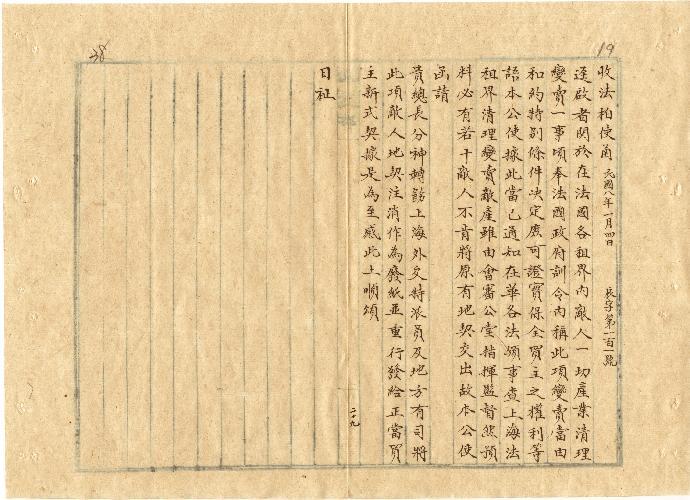 收法柏使函 民國八年一月四日 辰字第一百一號
逕啟者關於在法國各租界內敵人一切產業清理
變賣一事頃奉法國政府訓令內稱此項變賣當由
和約特別條件決定庶可證實保全買主之權利等
語本公使據此當已通知在華各法領事查上海法
租界清理變賣敵產雖由會審公堂指揮監督然預
料必有若干敵人不肯將原有地契交出故本公使
函請
貴總長分神轉飭上海外交特派員及地方有司將
此項敵人地契注消作為廢紙並重行發給正當買
主新式契據是為至感此上順頌
日祉
二十九
19
38